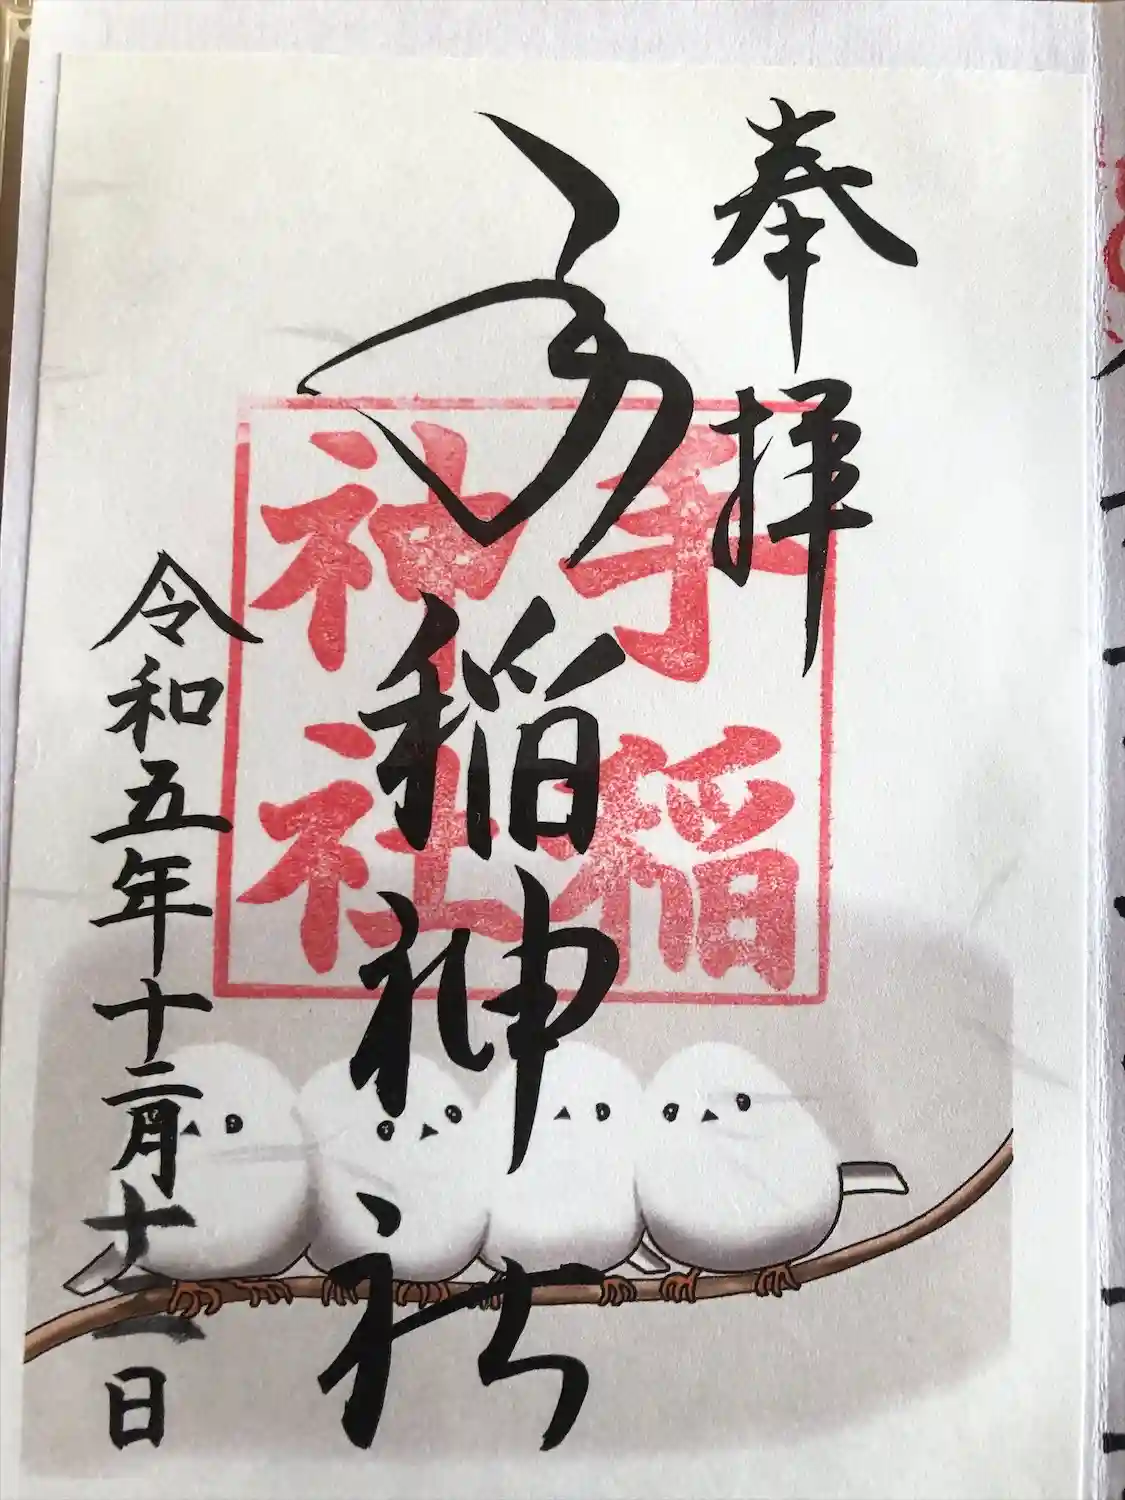 奉拝
手稲神社
令和五年十二月十日
手稲
神社